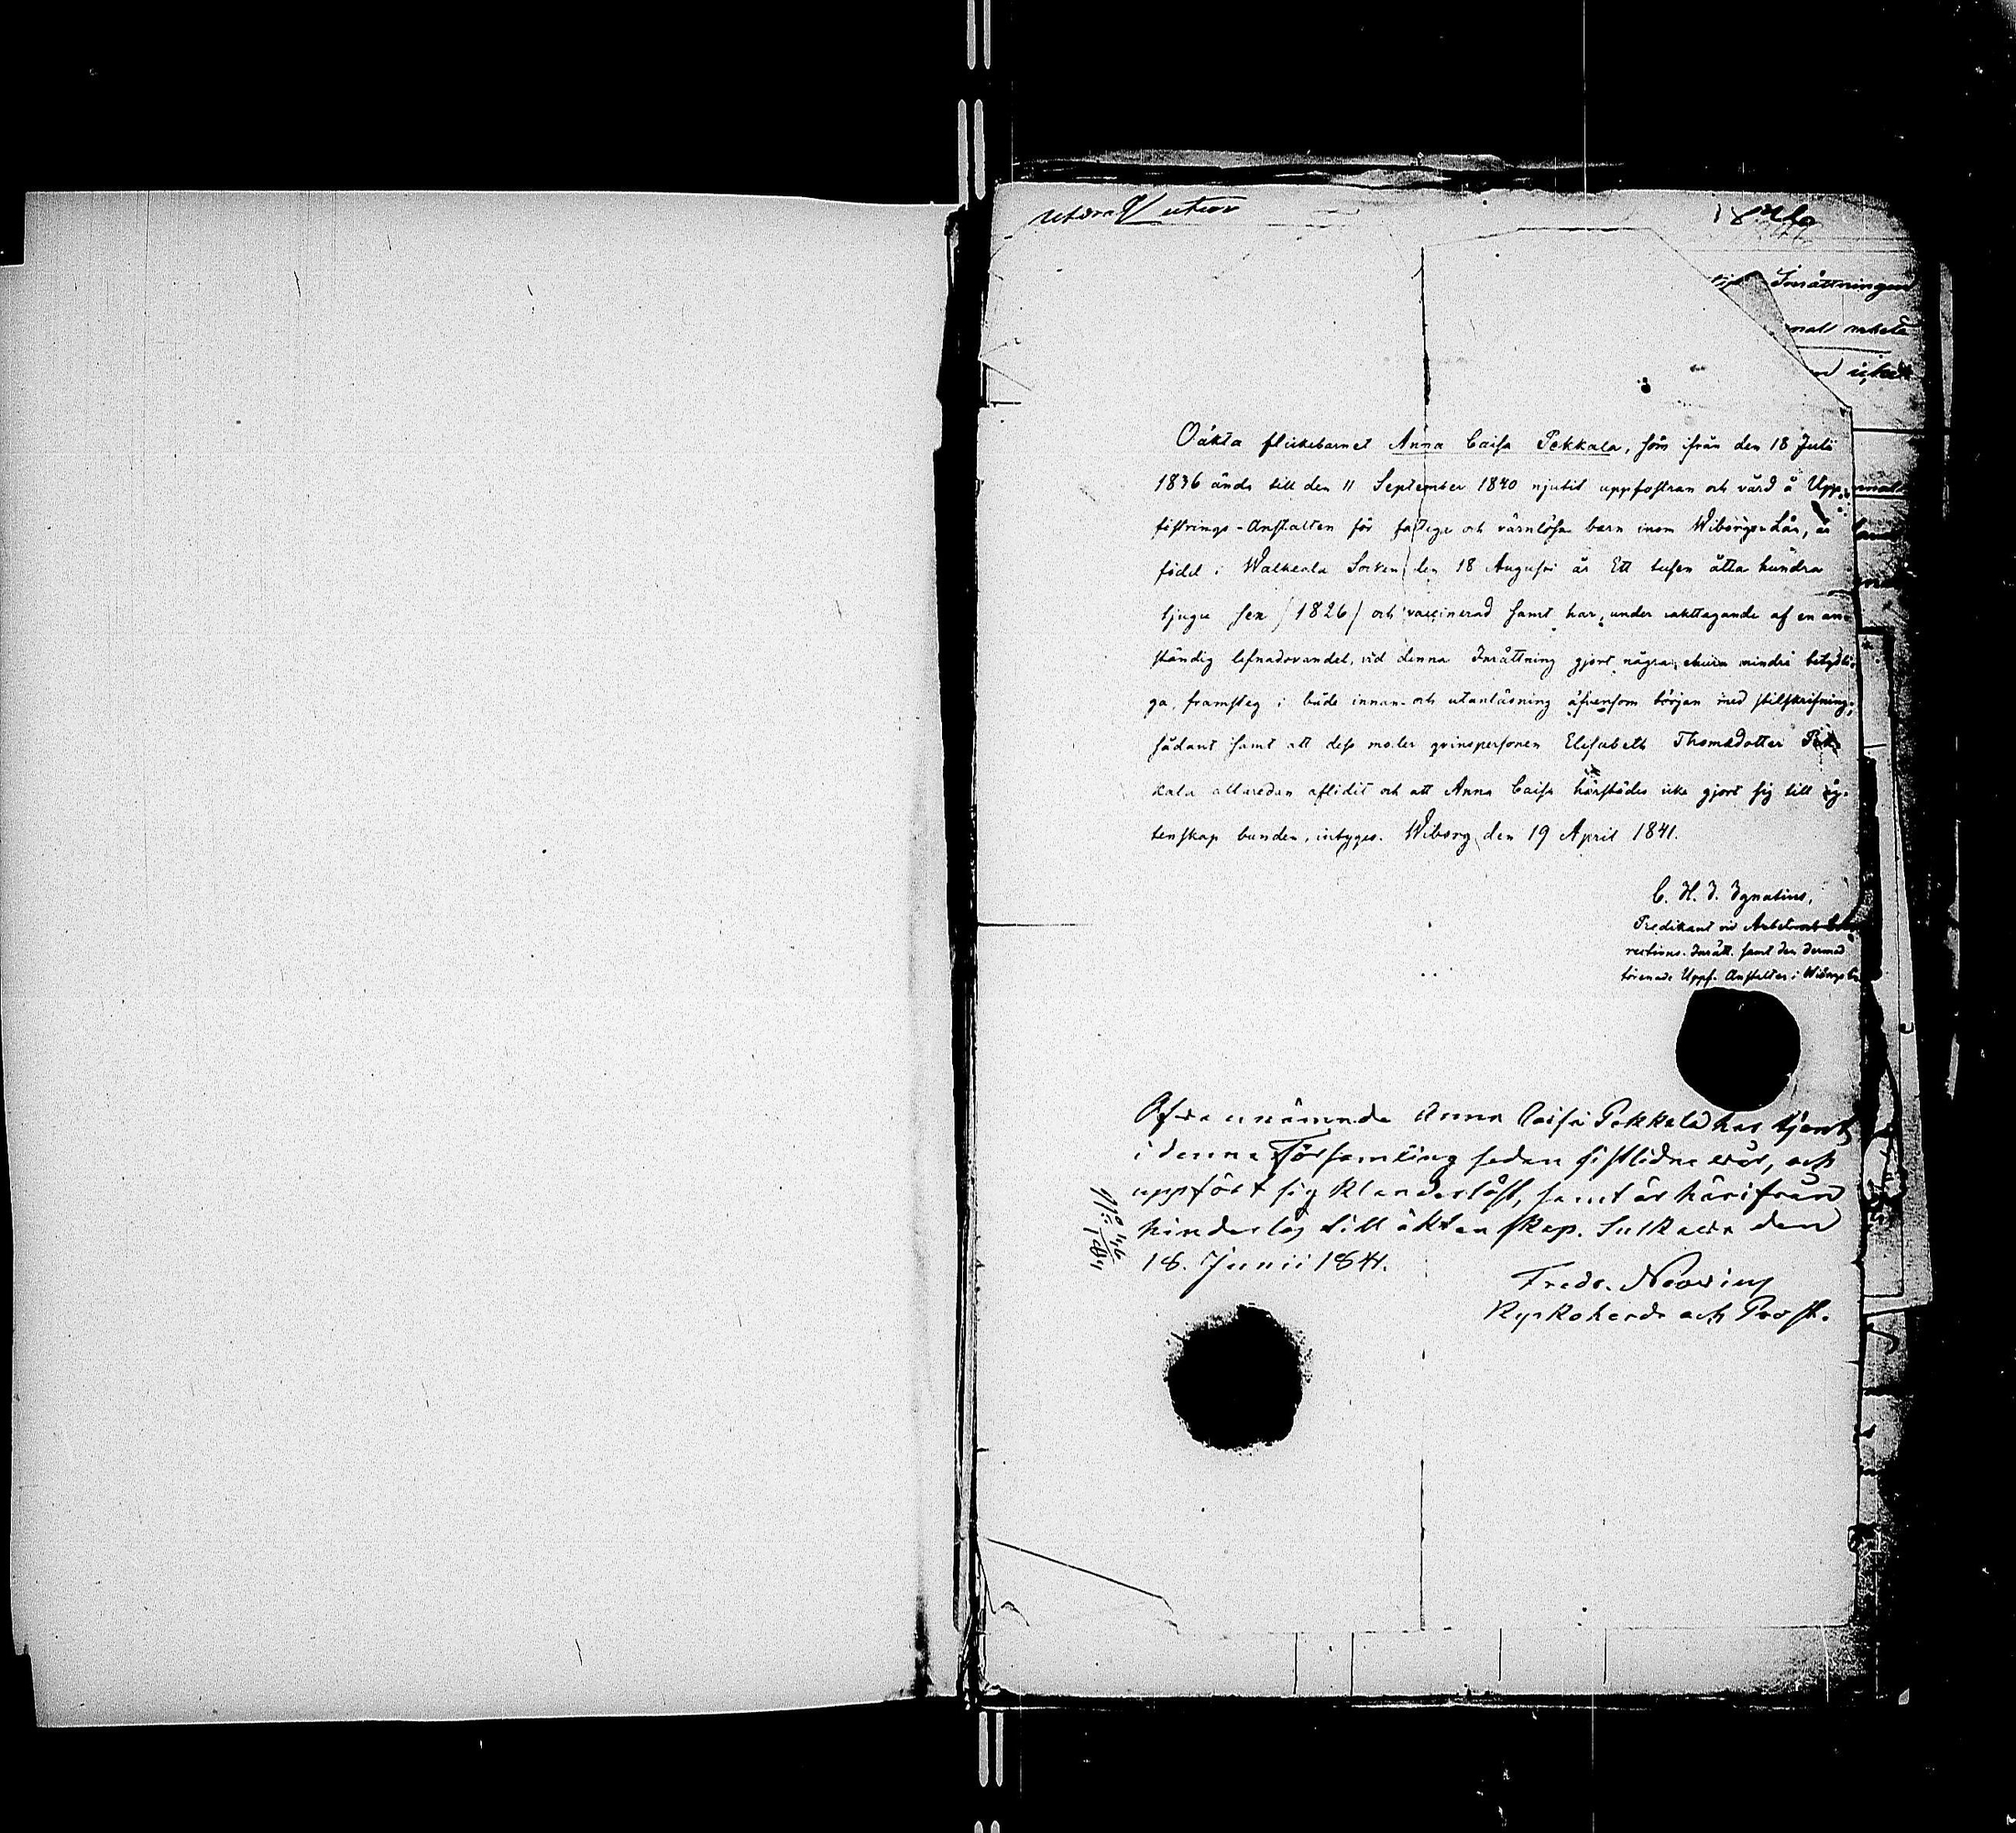 Oäkta flickebarnet Anna Caisa Pekkala, som ifrån den 18 Julii
1836 ända till den 11 September 1840 njutit uppfostran och vård å Upp-
fostrings-Anstalten för fattiga och värnlösa barn inom Wiborgs Län, är
född i Walkeala Socken den 18 Augusti år Ett tusen åtta hundra
tjugu sex /1826/ och vaccinerad samt har, under iakttagande af en an-
ständig lefnadsvandel, vid denna Inrättning gjort några, ehuru mindre betydli-
ga, framsteg i både innan- och utanläsning äfvensom början med stilskrifning;
sådant samt att dess moder qvinspersonen Elisabeth Thomasdotter Pek-
kala allaredan aflidit och att Anna Caisa härstädes icke gjort sig till äg-
tenskap bunden, intygas. Wiborg den 19 April 1841.
C. H. J. Ignatius,
Predikant vid Arbets och
rections-Inrätt. samt den dermed
förenade Uppf. Anstalten i Wiborgs
Ofvannämnde Anna Caisa Pekkala har tjent
i denna Församling sedan sistlidne vår, och
uppfört sig klanderlöst, samt är härifrån
hinderlös till äktenskap. Sulkava den
18. Junii 1841.
No 46
1841
Fredr. Neovius
Kyrkoherde och Prost.
Inrättningen